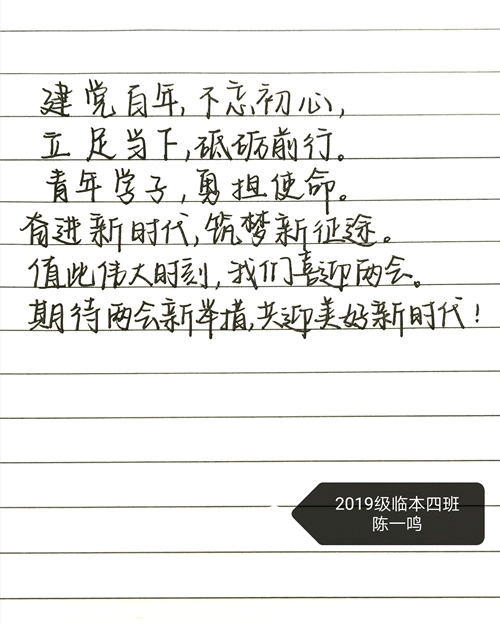 建党百年,不忘初心,
立足当下,砥砺前行。
青年学子,勇担使命。
奋进新时代,筑梦新征途。
值此伟大时刻,我们喜迎两会。
期待两会新举措,共迎美好新时代!
2019级临本四班
陈一鸣